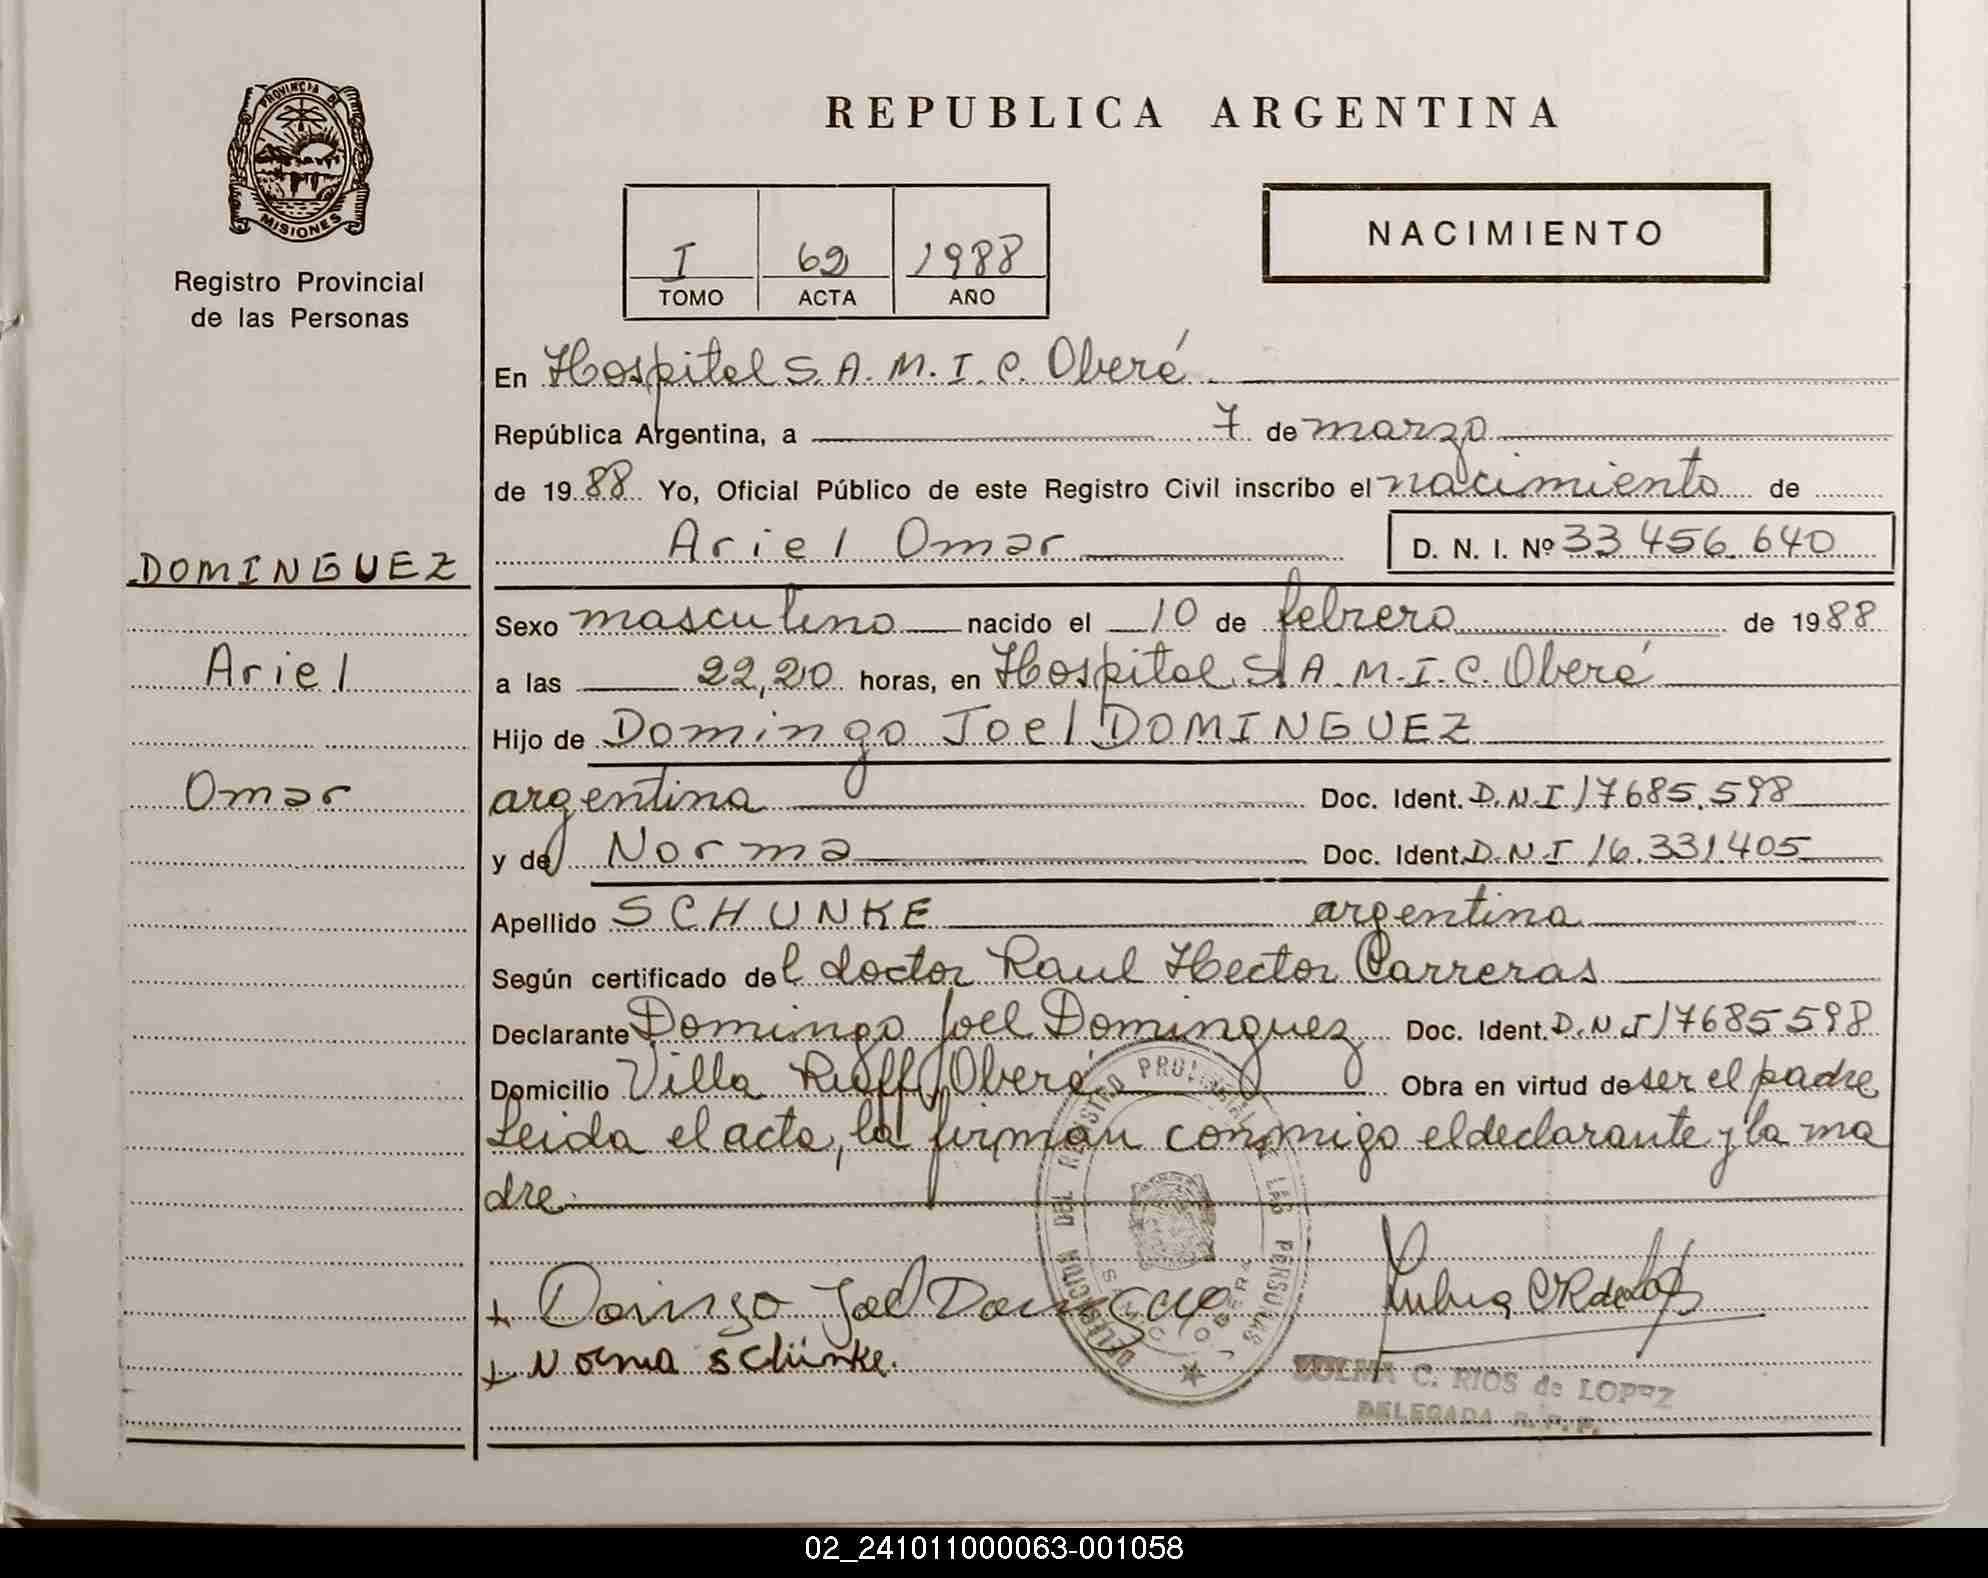 REPUBLICA ARGENTINA
PROVINCIA DE
MISIONES
Registro Provincial
de las Personas
I 62 1988
TOMO ACTA AÑO
NACIMIENTO
En Hospital S.A.M.I.C. Oberá
República Argentina, a 7 de marzo
de 1988 Yo, Oficial Público de este Registro Civil inscribo el nacimiento de
Ariel Omar D. N. I. Nº 33 456.640
DOMINGUEZ
Ariel
Omar
Sexo masculino nacido el 10 de febrero de 1988
a las 22,20 horas, en Hospital S.A.M.I.C. Oberá
Hijo de Domingo Joel DOMINGUEZ
argentina Doc. Ident. D.N.I 17685.598
y de Norma Doc. Ident. D.N.I 16.331.405
Apellido SCHUNKE argentina
Según certificado del doctor Raul Hector Carreras
Declarante Domingo Joel Dominguez Doc. Ident. D.N.I 17685598
Domicilio Villa Oberá Obra en virtud de ser el padre
Leida el acta, la firman conmigo el declarante y la ma
dre.
DELEGACION DEL REGISTRO PROVINCIAL DE LAS PERSONAS
+ Domingo Joel
+ Norma schünke.
C. RIOS de LOPEZ
DELEGADA R. P. P.
02_241011000063-001058